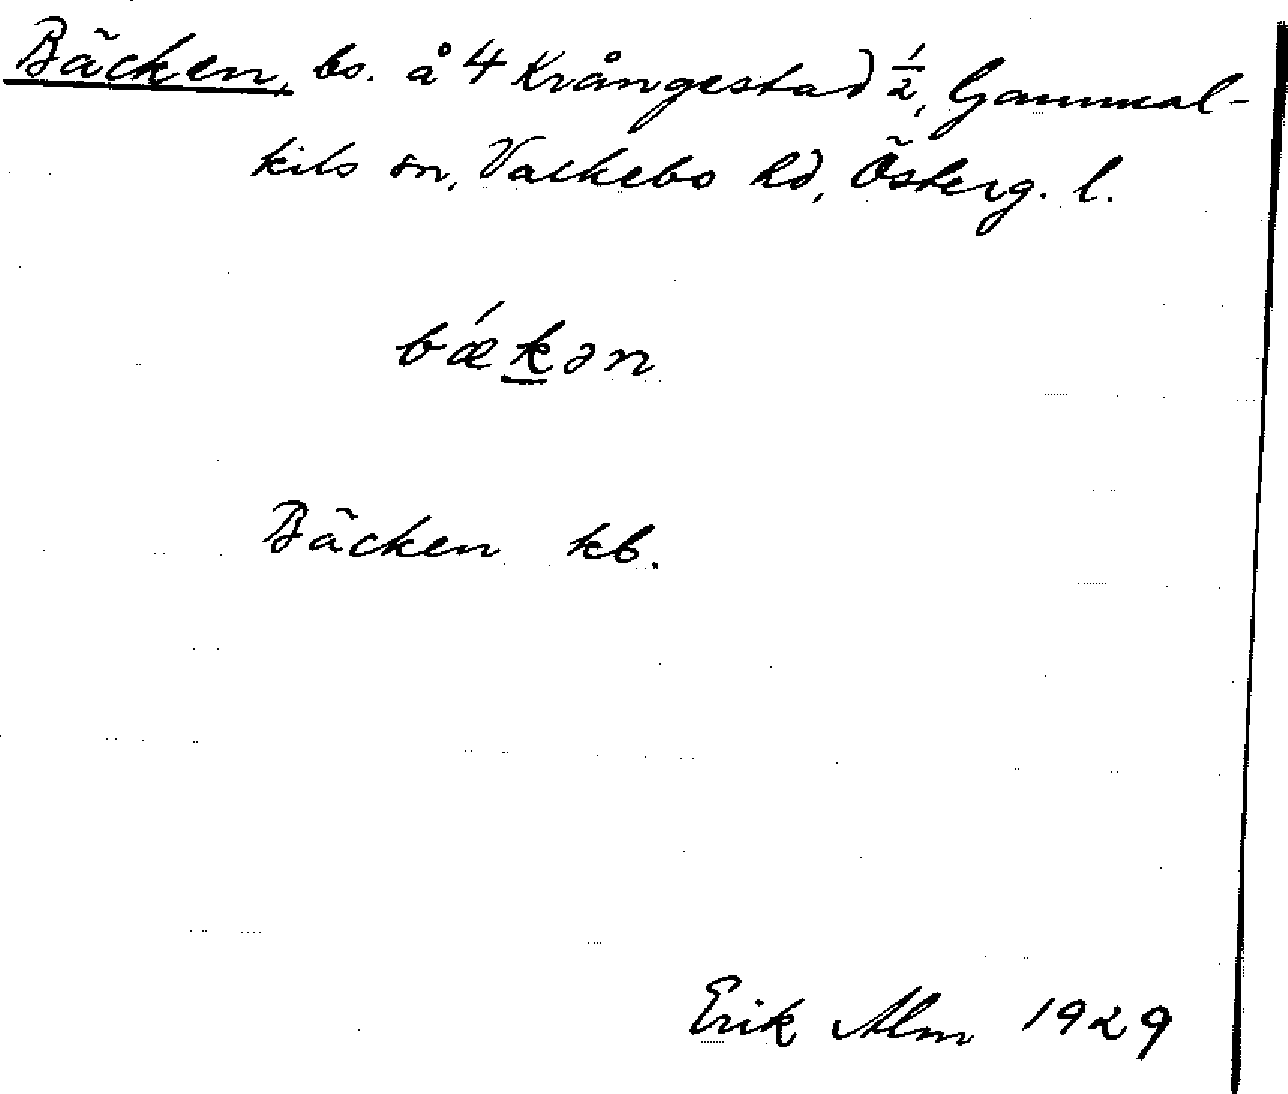 Bäcken, bs. å 4 Krångestad 1/2, Gammal-
kils sn, Valkebo hd, Österg. l.
bǽkən
Bäcken kb.
Erik Alm 1929